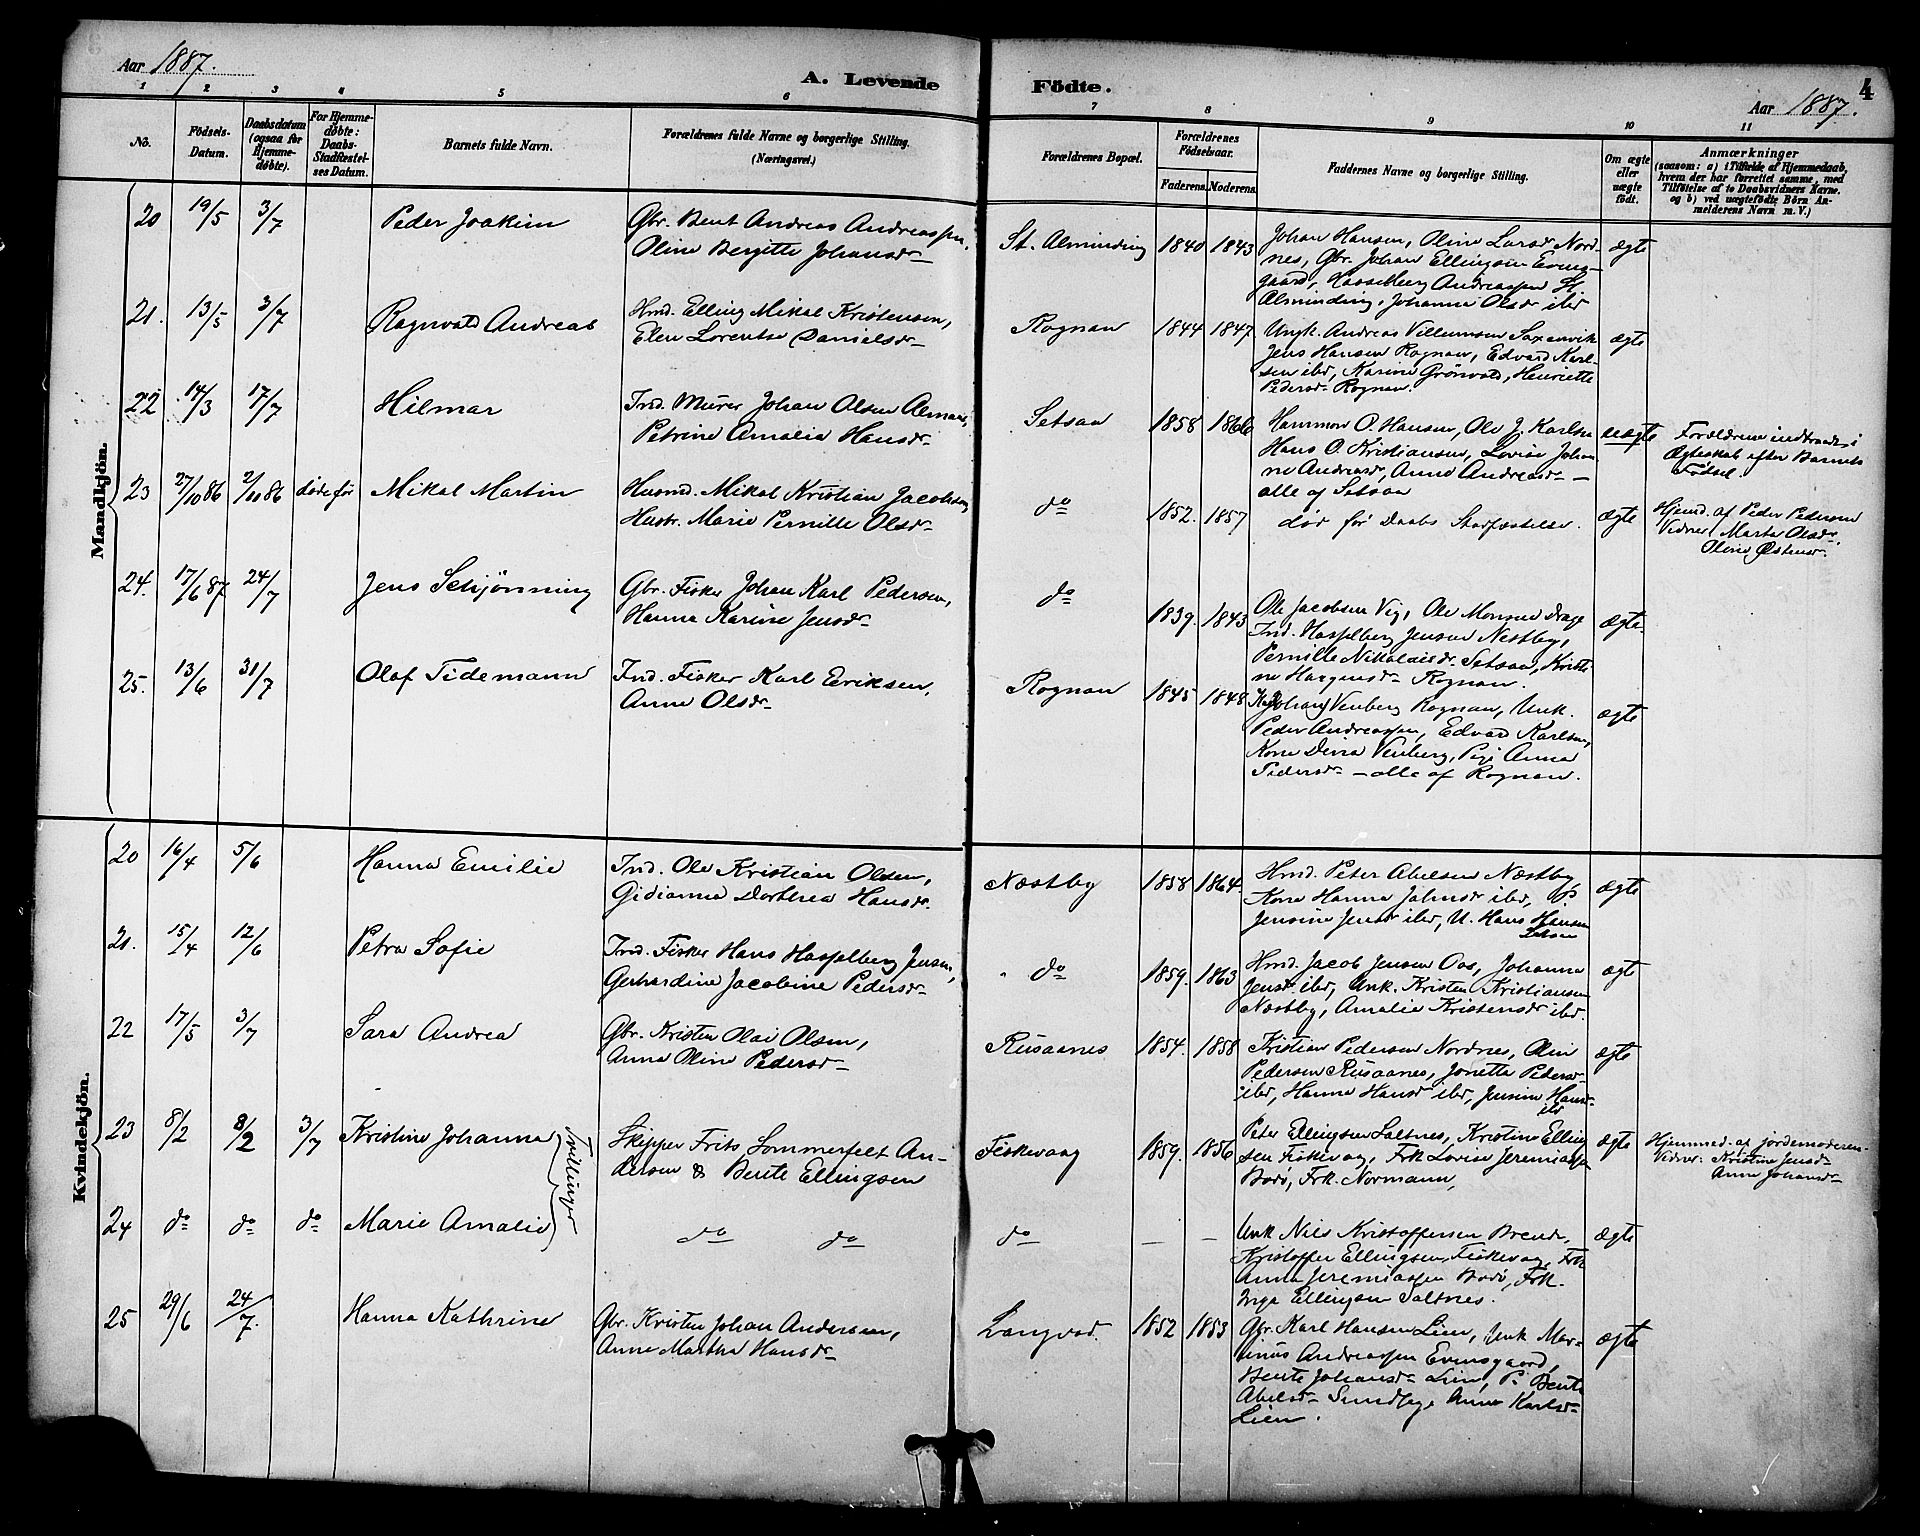 Aar 1887.
A. Levende Födte.
4
Aar 1887.
1 2 3 4 5 6 7 8 9 10 11
No.
Födsels-
Datum.
Daabsdatum
(ogsaa for
Hjemme-
döbte).
For Hjemme-
döbte:
Daabs-
Stadfæstel-
ses Datum.
Barnets fulde Navn.
Forældrenes fulde Navne og borgerlige Stilling.
(Næringsvei.)
Forældrenes Bopæl.
Forældrenes
Födselsaar.
Faderens. Moderens.
Faddernes Navne og borgerlige Stilling.
Om ægte
eller
uægte
födt.
Anmærkninger
(saasom: a) i Tilfælde af Hjemmedaab,
hvem der har forrettet samme, med
Tilföielse af to Daabsvidners Navne.
og b) ved uægtefödte Börn An-
melderens Navn m. V.)
Mandkjön.
20 19/5 3/7 Peder Joakim
Gbr. Bent Andreas Andreassen,
Oline Bergitte Johansdr
St. Alminding 1840 1843
Johan Hansen, Oline Larsdr Nord-
nes, Gbr. Johan Ellingsen Evens-
gaard, Hasselberg Andreassen St.
Alminding, Johanna Olsdr ibd
ægte
21. 13/5 3/7 Ragnvald Andreas
Hmd. Elling Mikal Kristensen,
Elen Lorentse Danielsdr
Rognan 1844 1847.
Ungk. Andreas Villumsen Saxenvik
Jens Hansen Rognan, Edvard Karl-
sen ibd, Karine Grönvold, Henriette
Pedersdr Rognan.
ægte
22 14/3 17/7 Hilmar
Ind. Murer Johan Olsen
Petrine Amalia Hansdr
Setsaa 1858 1866
Hammon O. Hansen, Ole J. Karlsen
Hans O. Kristiansen, Lovise Johan
ne Andreasdr, Anne Andreasdr —
alle af Setsaa
uægte
Forældrene indtraadt i
Ægteskab efter Barnets
Födsel.
23 27/10 86 2/10 86 döde før Mikal Martin
Husmd. Mikal Kristian Jacobsen,
Hustr. Marie Pernille Olsdr
do 1852. 1857
död før Daabs Stadfæstelse.
ægte
Hjemd. af Peder Pedersen
Vidner Marta Olsdr,
Oline Østensdr
24. 17/6 87 24/7 Jens Schjönning
Gbr. Fisker Johan Karl Pedersen,
Hanna Karine Jensdr
do 1839. 1843
Ole Jacobsen Vig, Ole Monsen Drage
Ind. Hasselberg Jensen Nestby,
Pernille Nikolaisdr Setsaa, Kristi
ne Rognan.
ægte.
25. 13/6 31/7 Olaf Tidemann
Ind. Fisker Karl Eriksen,
Anne Olsdr
Rognan 1845 1848
Johan Venberg Rognan, Unk.
Peder Andreassen, Edvard Karlsen,
Kone Dina Venberg, Pige Anna
Pedersdr — alle af Rognan.
ægte
Kvindekjön.
20 16/4 5/6 Hanna Emilie
Ind. Ole Kristian Olsen,
Gidianna Dorthea Hansdr.
Næstby 1858 1864.
Hmd. Peter Abelsen Næstby
Kone Hanna Jahnsdr ibd, P.
Jensine Jensdr ibd, U. Hans Hansen
Setsaa
ægte
21. 15/4 12/6 Petra Sofie
Ind. Fisker Hans Hasselberg Jensen,
Gerhardine Jacobine Pedersdr
do 1859. 1863
Hmd. Jacob Jensen Oos, Johanna
Jensdr ibd, Unk. Kristen Kristiansen
Næstby, Amalie Kristensdr ibd.
ægte
22 17/5 3/7 Sara Andrea
Gbr. Kristen Olai Olsen,
Anna Oline Pedersdr
Rusaanes 1854. 1858
Kristian Pedersen Nordnes, Olin
Pedersen Rusaanes, Jonetta Pedersdr
ibd, Hanna Hansdr ibd, Jensine Hansdr
ibd
ægte
23 8/2 8/2 3/7 Kristine Johanna
Tvillinger
Skipper Frits Sommerfelt An-
dersen & Bente Ellingsen
Fiskevaag 1859. 1856
Peter Ellingsen Saltnes, Kristine Elling
sen Fiskevaag, Frk Lovise Jeremiassen
Bodö, Frk. Normann,
ægte
Hjemmed. af Jordemoderen.
Vidner: Kristine Jensdr
Anne Johansdr
24 do do do Marie Amalie
do do do — —
Unk Nils Kristoffersen Brende,
Kristoffer Ellingsen, Fiskevag, Frk
Anna Jeremiassen Bodö, Frk.
Inga Ellingsen Saltnes.
ægte
25 29/6 24/7. Hanna Kathrine
Gbr. Kristen Johan Andersen,
Anne Martha Hansdr
Langvad. 1852 1853
Gbr. Karl Hansen Lien, Unk Mar-
tinus Andreassen Evensgaard,
Bente Johansdr Lien, P. Bente
Abelsdr Anne Karlsdr
Lien.
ægte